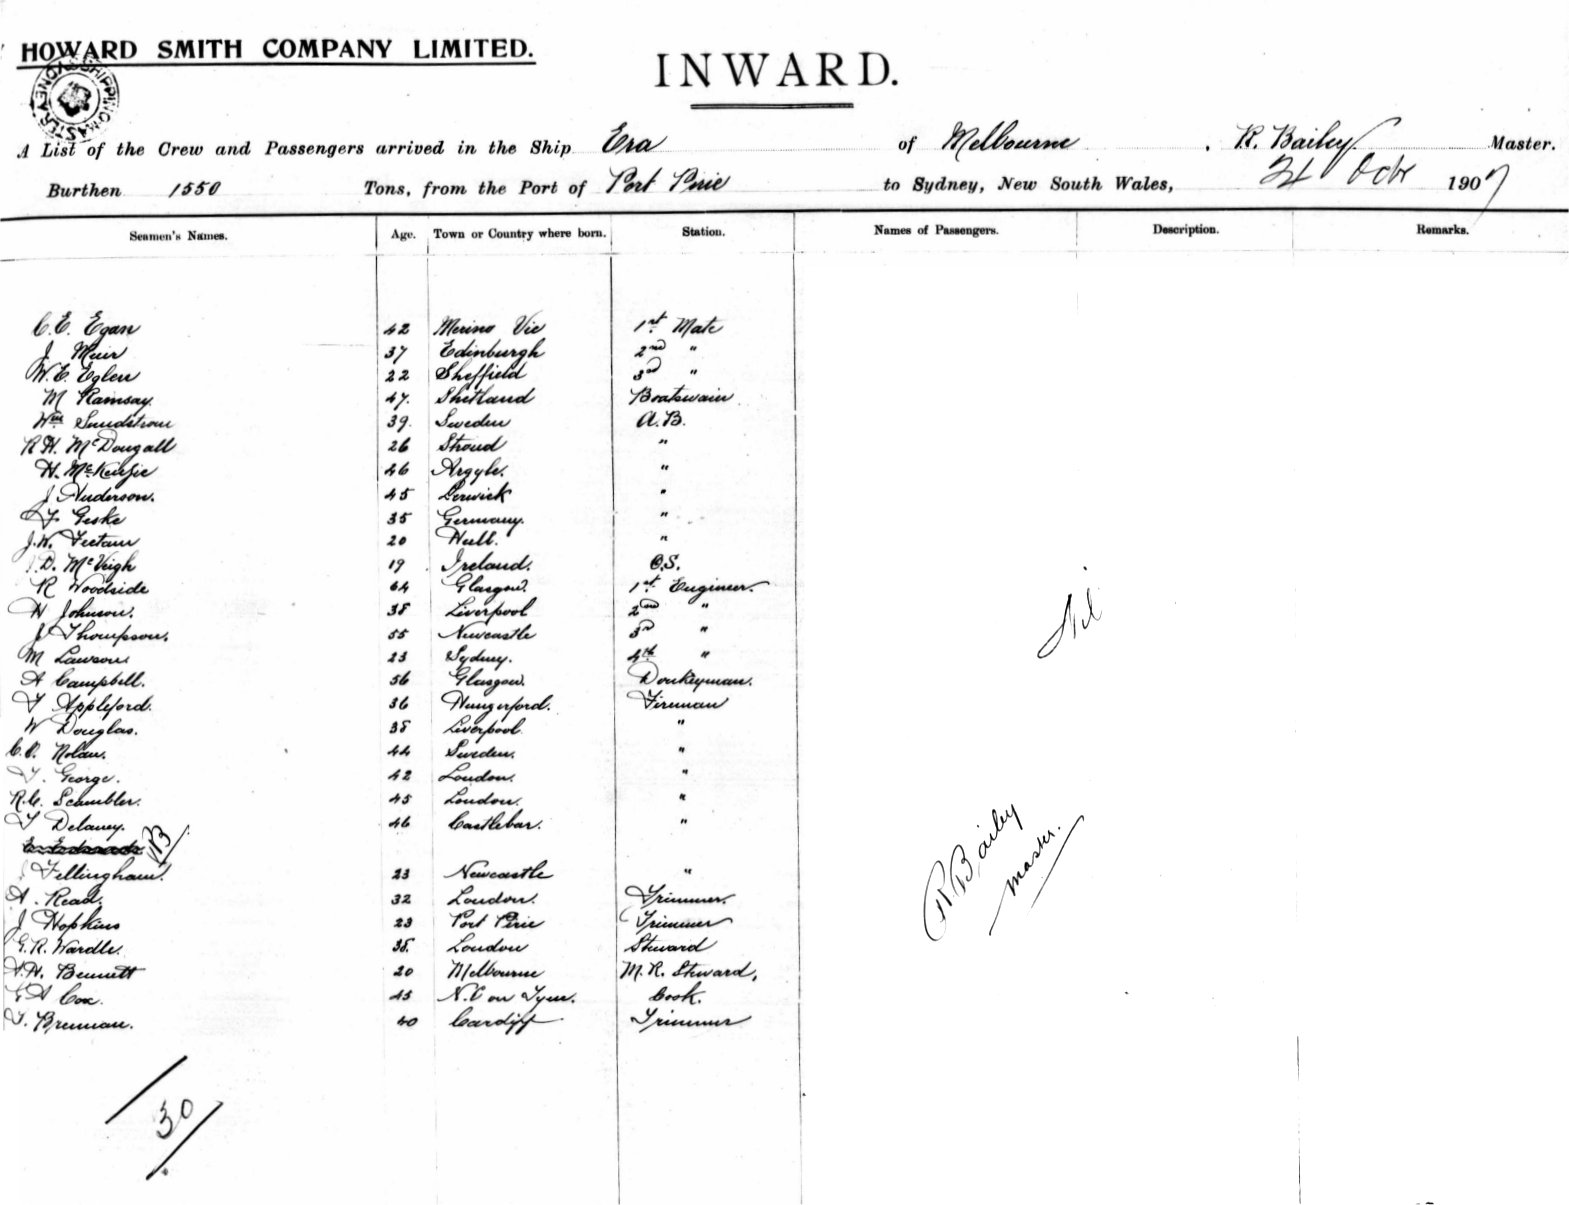 HOWARD SMITH COMPANY LIMITED.
INWARD.
SHIPPING MASTER SYDNEY
A List of the Crew and Passengers arrived in the Ship Era of Melbourne, R. Bailey Master.
Burthen 1550 Tons, from the Port of Port Pirie to Sydney, New South Wales, Octr 1907
Seamen's Names. Age. Town or Country where born. Station. Names of Passengers. Description. Remarks.
C. E. Egan 42 Merino Vic 1st Mate
J Muir 37 Edinburgh 2nd "
W. E. Eglen 22 Sheffield 3rd "
M Ramsay. 47. Shetland Boatswain
Wm Sundstrom 39. Sweden A.B.
R H. McDougall 26 Stroud "
H. McKenzie 46 Argyle. "
J Anderson. 45 Lerwick "
Geske 35 Germany. "
J. W. 20 Hull. "
D. McVeigh 19 Ireland. O.S.
R Woodside 64 Glasgow. 1st Engineer.
H Johnson. 38 Liverpool 2nd "
J Thompson. 55 Newcastle 3rd "
M Lawson 23 Sydney. 4th "
A Campbell. 56 Glasgow. Donkeyman.
T Appleford. 36 Hungerford. Fireman
W Douglas. 38 Liverpool "
C. O. Nolan. 44 Sweden. "
T. George. 42 London. "
R. C. Scambler. 45 London. "
T Delaney. 46 Castlebar. "
RB
Fellingham. 23 Newcastle "
A. Read. 32 London. Trimmer.
J Hopkins 23 Port Pirie Trimmer
G. R. Wardle. 38. London Steward
A. H. Bennett 20 Melbourne M. R. Steward.
A Cox. 45 N.C on Tyne. Cook.
T. Brennan. 40 Cardiff Trimmer
Nil
R. Bailey
Master.
30